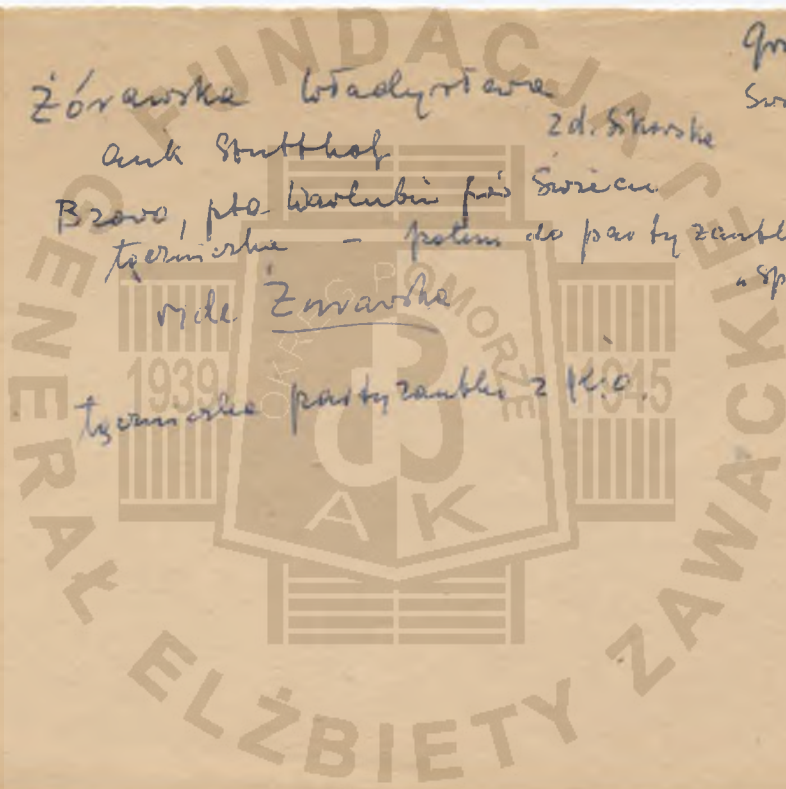 Żórawska Władysława
zd. Sikorska
ank Stutthof
Brzowo, pta Warlubie pow Świecie
łączniczka – potem do partyzantki
vide Żurawska
łączniczka partyzantki z K.O.
FUNDACJA GENERAŁ ELŻBIETY ZAWACKIEJ
OKRĘG POMORZE
1939 1945
AK